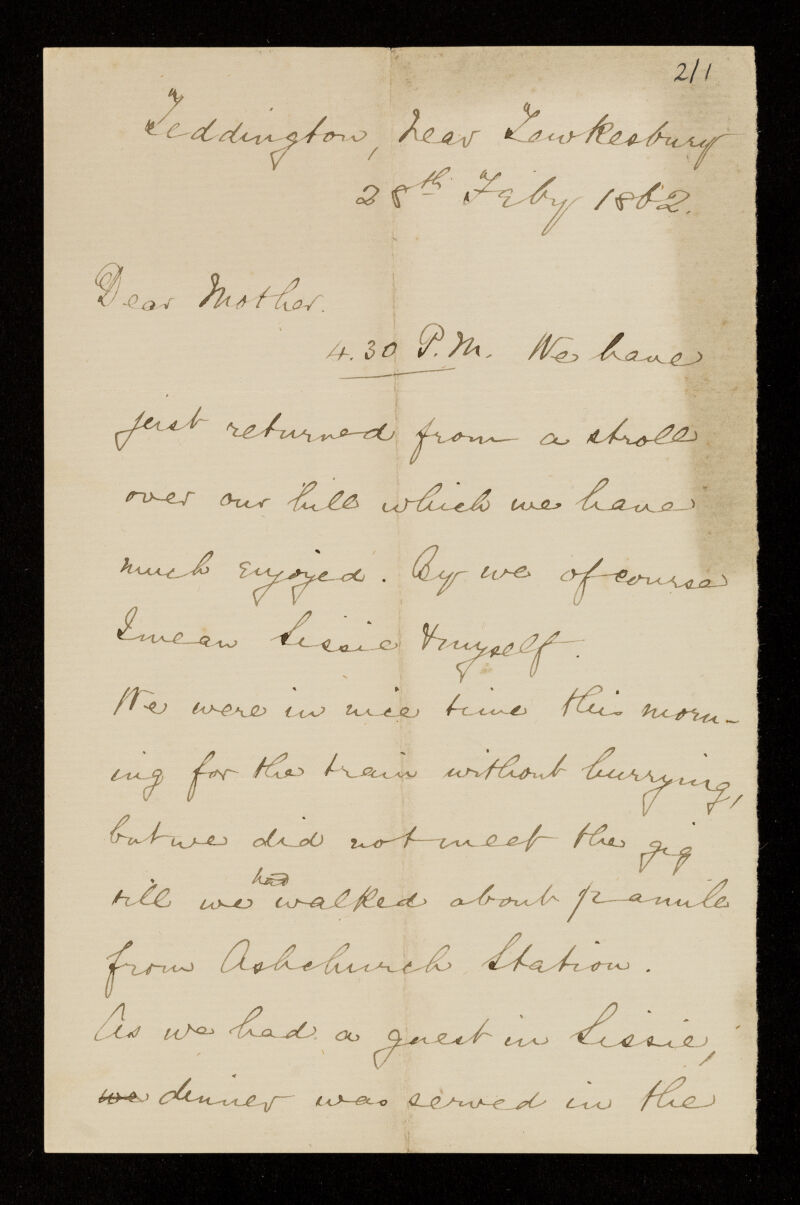 2/1
Teddington, near Tewkesbury
28th Feby 1862.
Dear Mother.
4.30 P.M. We have
just returned from a stroll
over our hill which we have
much enjoyed. By we of course
I mean Sissie & myself.
We were in nice time this morn-
ing for the train without hurrying,
but we did not meet the gig
till we had walked about ½ a mile
from Ashchurch Station.
As we had a guest in Sissie,
we dinner was served in the